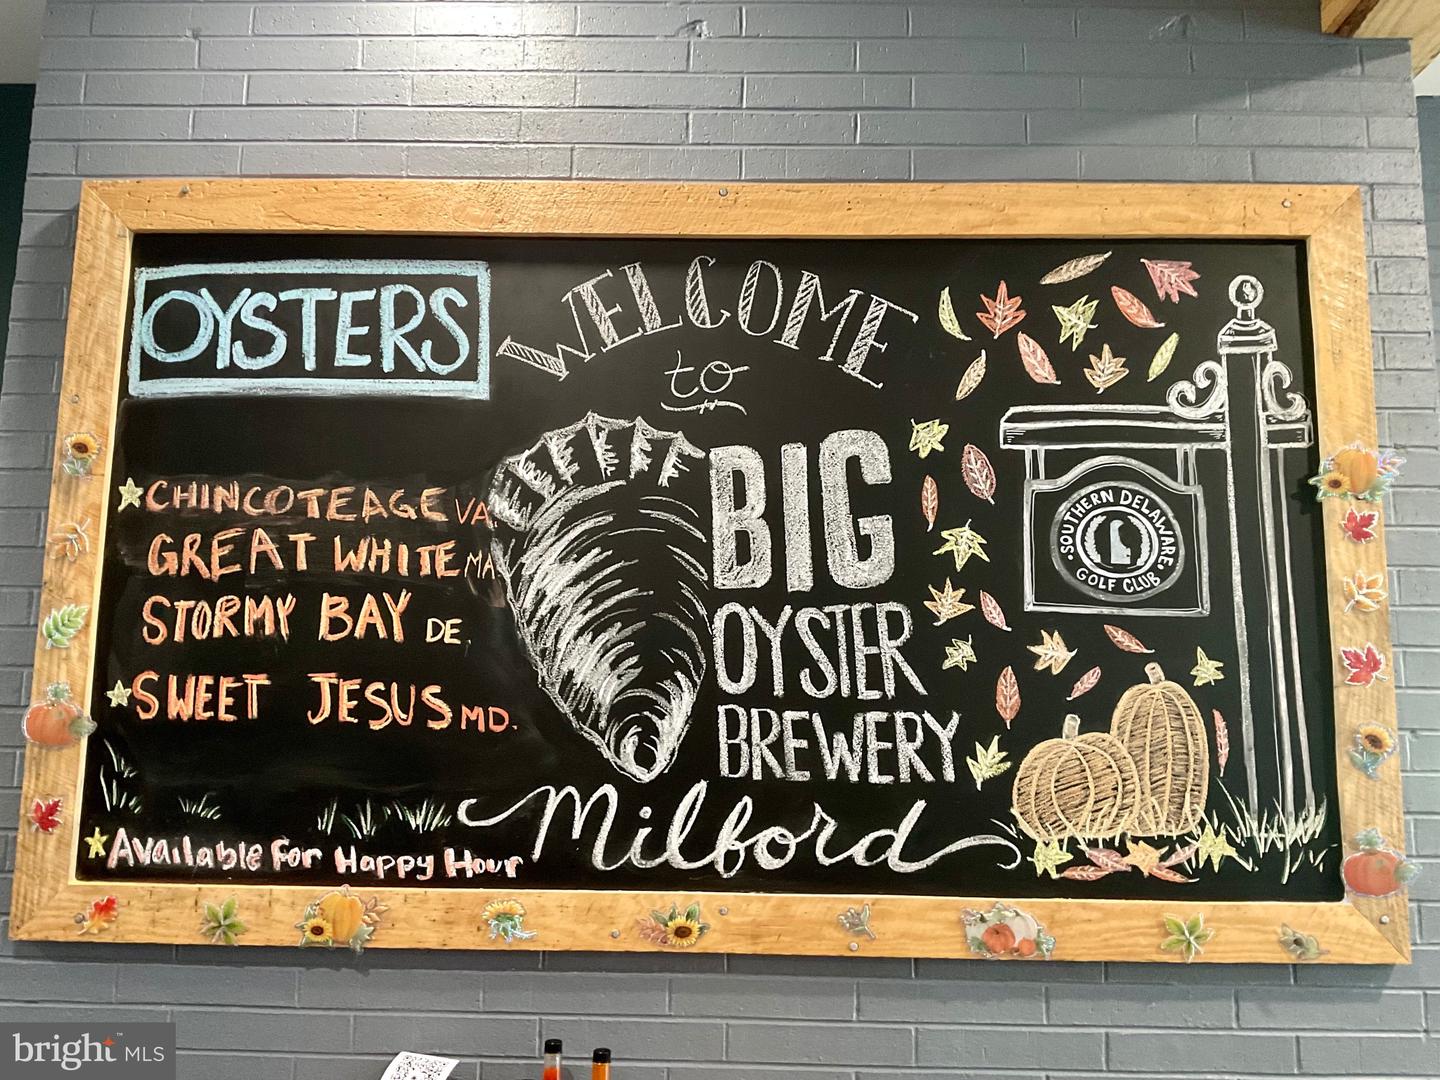 OYSTERS
CHINCOTEAGE VA.
GREAT WHITE MA
STORMY BAY DE.
SWEET JESUS MD.
AVAILABLE FOR HAPPY HOUR
WELCOME
to
BIG
OYSTER
BREWERY
Milford
SOUTHERN DELAWARE
GOLF CLUB
bright™ MLS